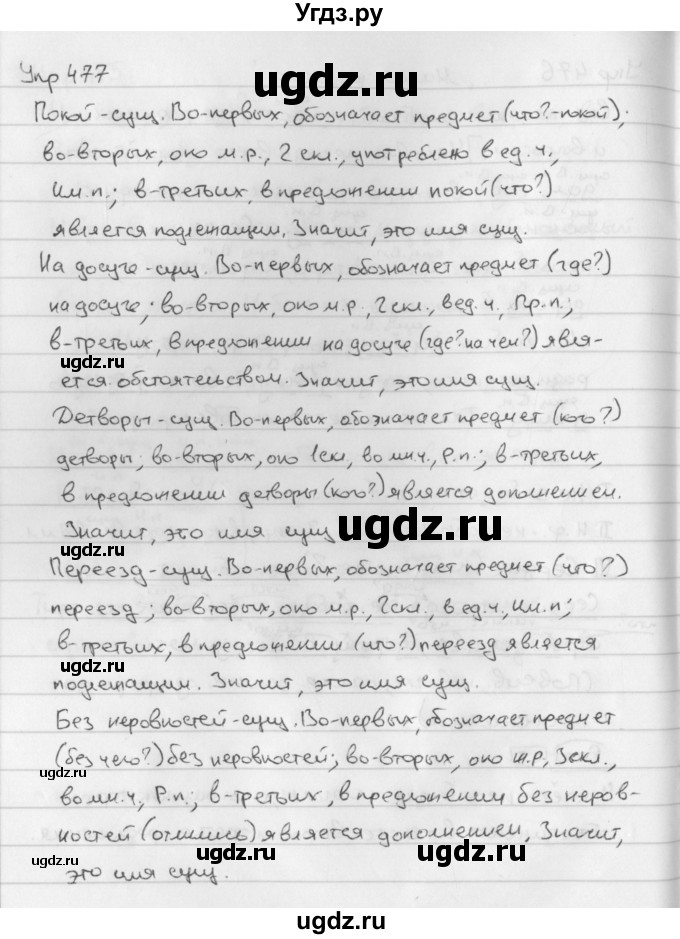 Угдз.ру
Упр 477
ugdz.ru
Покой - сущ. Во-первых, обозначает предмет (что? - покой);
во-вторых, оно м.р., 2 скл., употреблено в ед. ч.,
Им. п.; в-третьих, в предложении покой (что?)
является подлежащим. Значит, это имя сущ.
ugdz.ru
На досуге - сущ. Во-первых, обозначает предмет (где?)
на досуге; во-вторых, оно м.р., 2 скл., в ед. ч., Пр. п.;
в-третьих, в предложении на досуге (где? на чем?) явля-
ugdz.ru
ется обстоятельством. Значит, это имя сущ.
Детворы - сущ. Во-первых, обозначает предмет (кого?)
детворы; во-вторых, оно 1 скл, во мн.ч., Р.п.; в-третьих,
в предложении детворы (кого?) является дополнением.
Значит, это имя сущ
ugdz.ru
ugdz.ru
Переезд - сущ. Во-первых, обозначает предмет (что?)
переезд; во-вторых, оно м.р., 2 скл., в ед. ч., Им. п;
в-третьих, в предложении (что?) переезд является
ugdz.ru
подлежащим. Значит, это имя сущ.
Без неровностей - сущ. Во-первых, обозначает предмет
(без чего?) без неровностей; во-вторых, оно ж.р, 3 скл.,
ugdz.ru
во мн. ч, Р.п.; в-третьих, в предложении без неров-
ностей является дополнением, Значит,
ugdz.ru
ugdz.ru
ugdz.ru
это имя сущ.
ugdz.ru